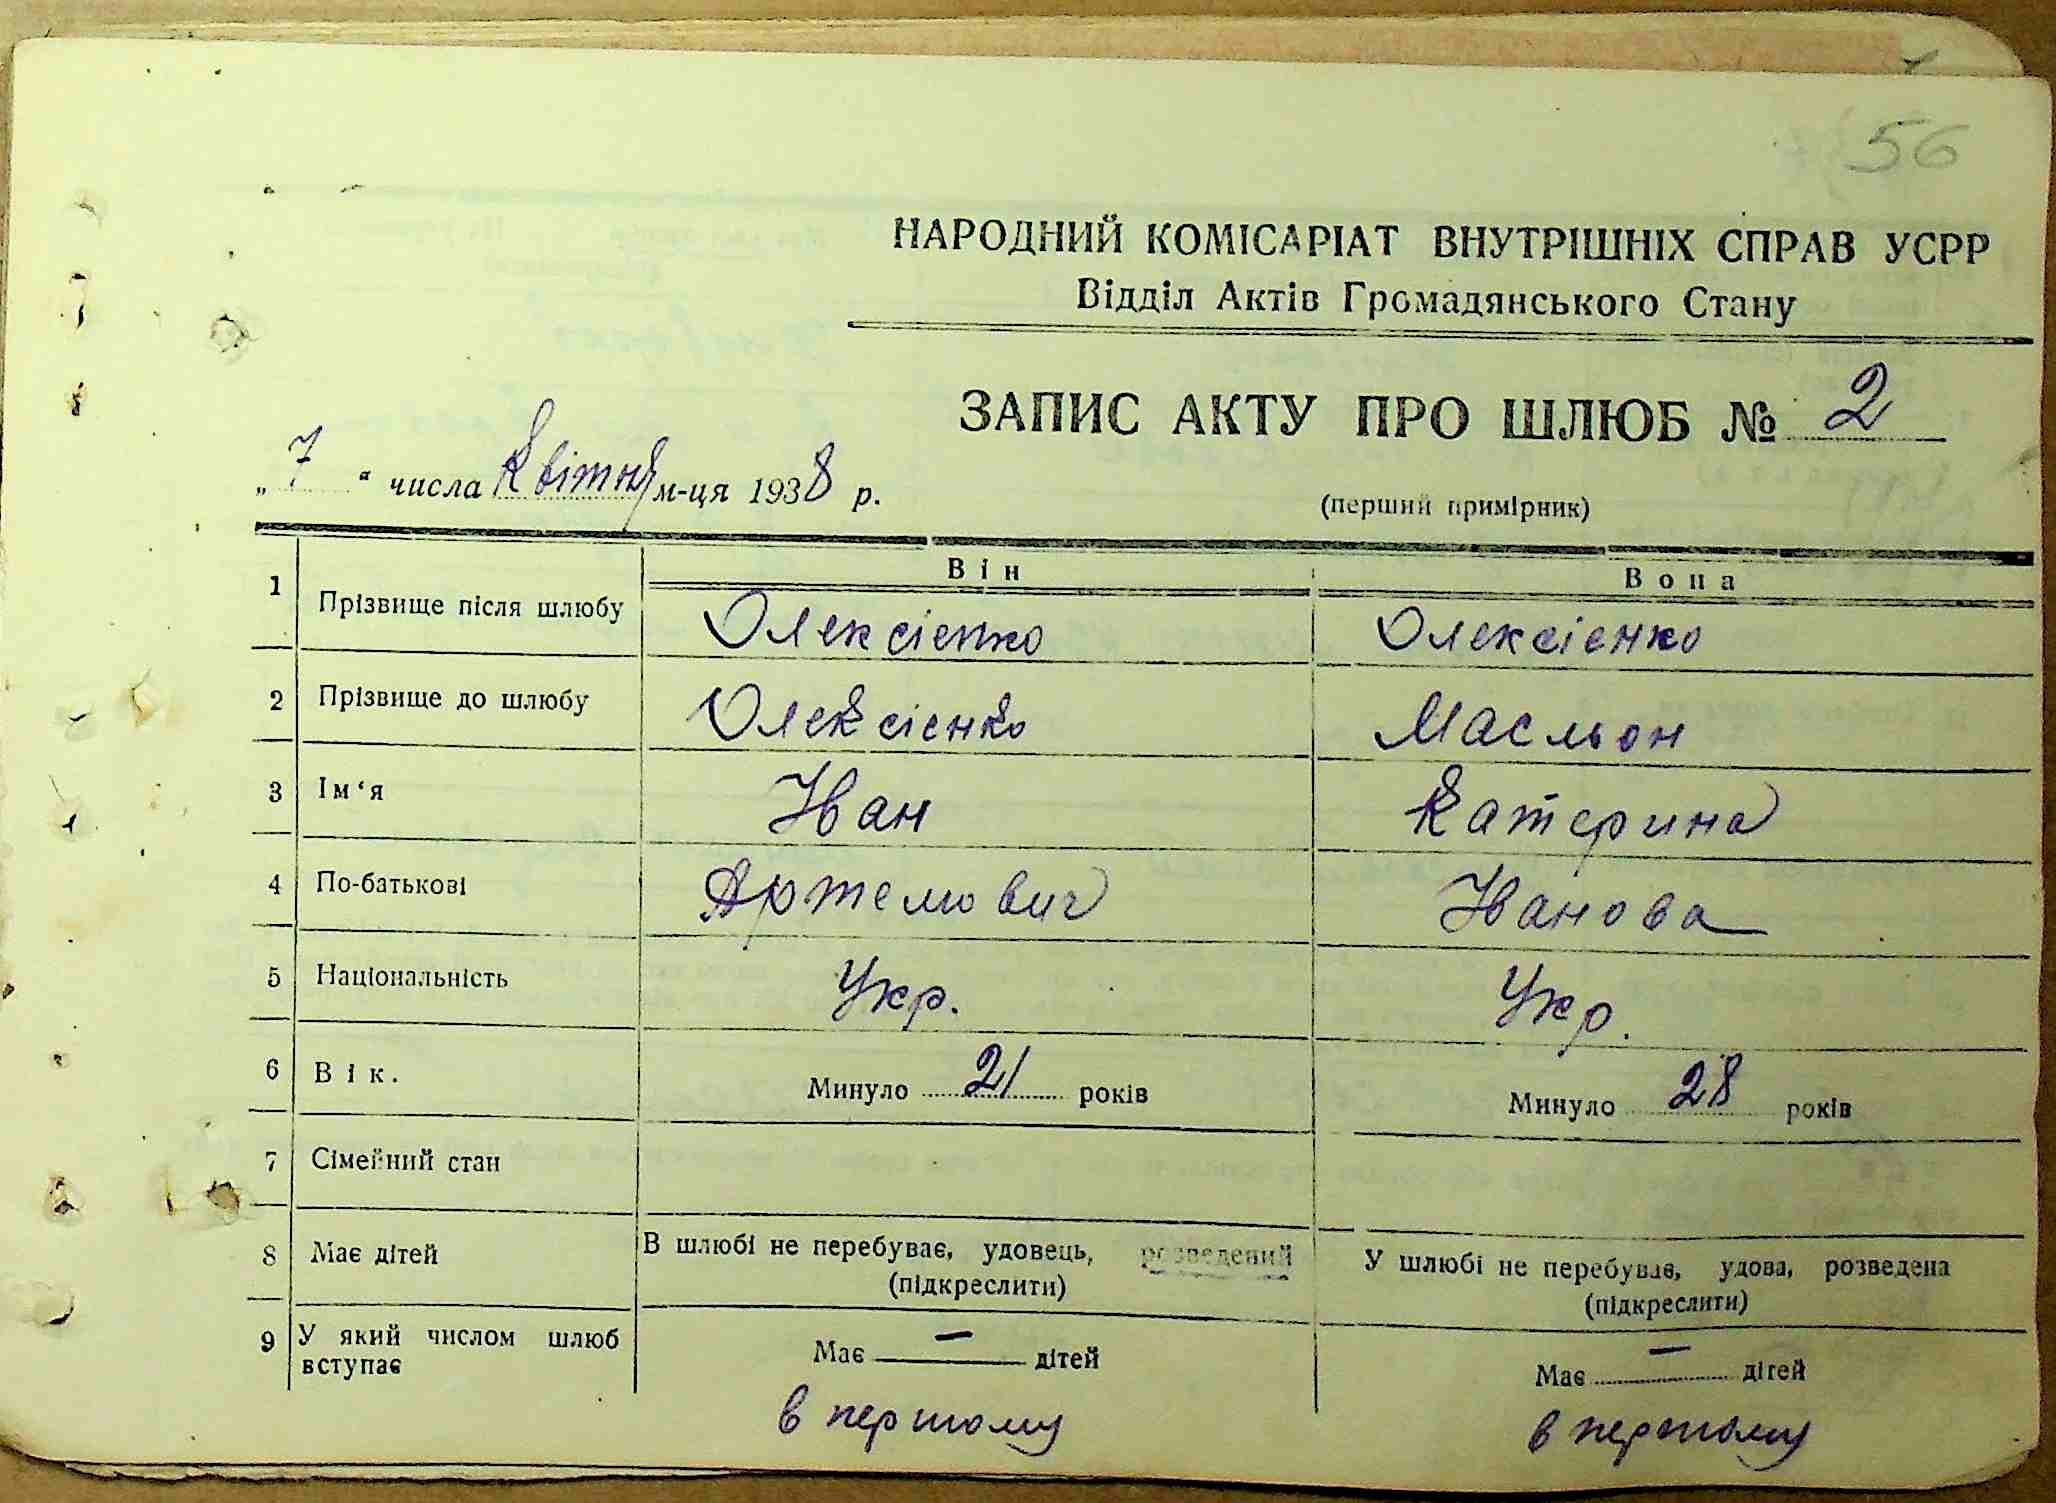 56
НАРОДНИЙ КОМІСАРІАТ ВНУТРІШНІХ СПРАВ УСРР
Відділ Актів Громадянського Стану
ЗАПИС АКТУ ПРО ШЛЮБ № 2
„ 7 “ числа Квітня м-ця 1938 р.
(перший примірник)
Він Вона
1 Прізвище після шлюбу Олексієнко Олексієнко
2 Прізвище до шлюбу Олексієнко Масльон
3 Ім‘я Іван Катерина
4 По-батькові Артемович Іванова
5 Національність Укр. Укр.
6 Вік. Минуло 21 років Минуло 28 років
7 Сімейний стан
8 Має дітей В шлюбі не перебуває, удовець, розведений У шлюбі не перебуває, удова, розведена
(підкреслити) (підкреслити)
9 У який числом шлюб Має — дітей Має — дітей
вступає
в першому в першому